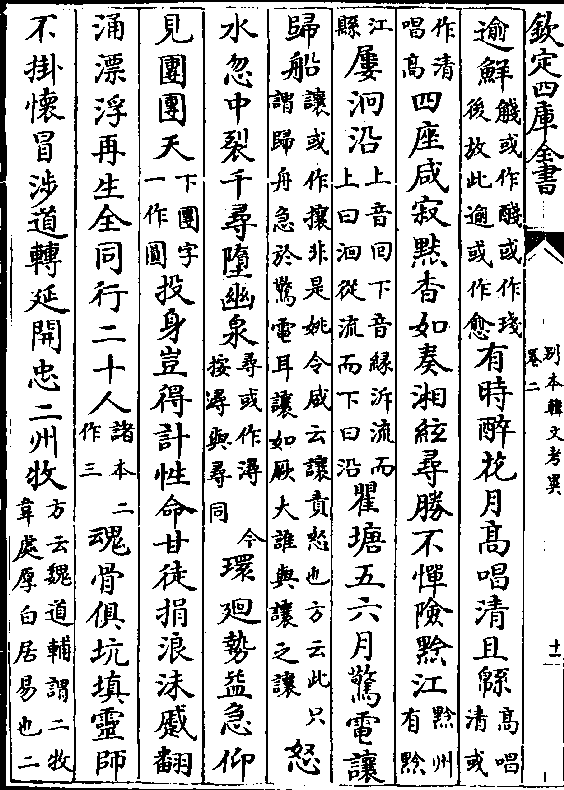 欽定四庫全書　别本韓文考異 卷二　十一
逾鮮或作醆或作琖後放此逾或作愈有時醉花月髙唱清且緜髙唱清或
作清唱髙四座咸寂黙杳如奏湘絃尋勝不憚險黔江黔州有黔
江縣屢洄沿上音回下音縁泝流而上曰洄從流而下曰沿瞿塘五六月驚電讓
歸船讓或作攘非是姚令威云讓責怒也方云此只謂歸舟急於驚電耳讓如厥大誰與讓之讓怒
水忽中裂千尋墮幽泉尋或作潯今按潯與尋同環廻勢益急仰
見團團天下團字一作圓投身豈得計性命甘徒捐浪沫蹙翻
涌漂浮再生全同行二十人諸本二作三魂骨俱坑填靈師
不掛懐冒涉道轉延開忠二州牧方云魏道輔謂二牧韋處厚白居易也二